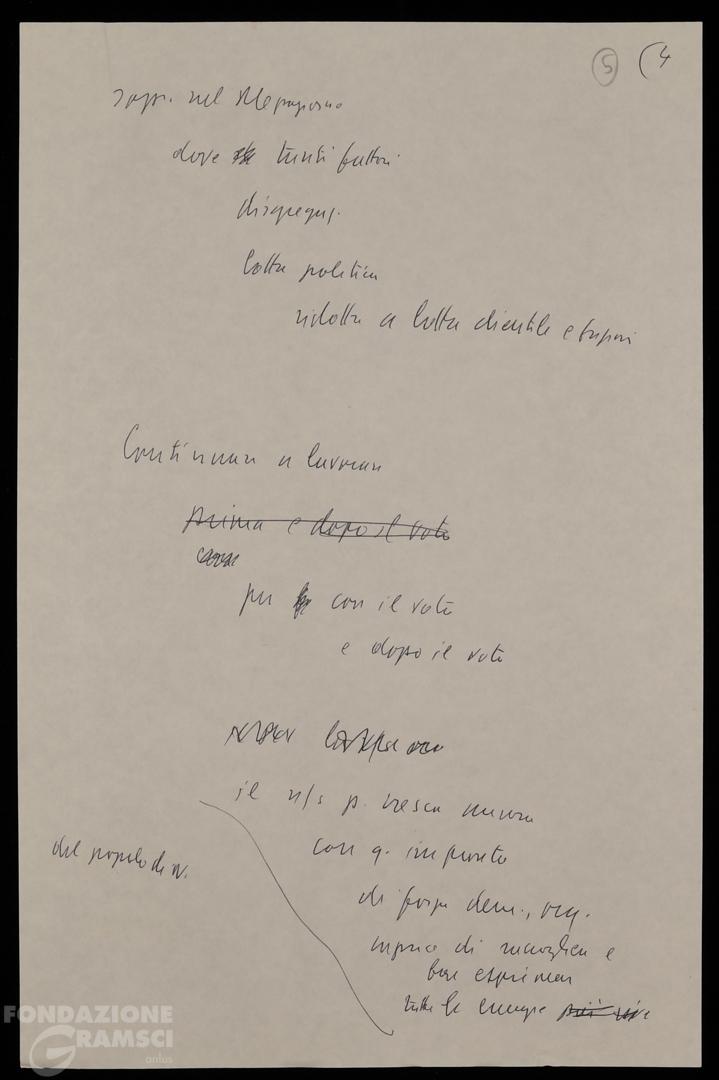 5 (4
sopr. nel Mezzogiorno
dove tanti fattori
disgregaz.
lotta politica
ridotta a lotta clientele e gruppi
Continuare a lavorare
prima e dopo il voto
per con il voto
e dopo il voto
il n/s p. cresca ancora
con q. impronta
del popolo di N.
di forza dem., org.
capace di raccogliere e
ben esprimere
tutte le energie più vive
FONDAZIONE
GRAMSCI
onlus